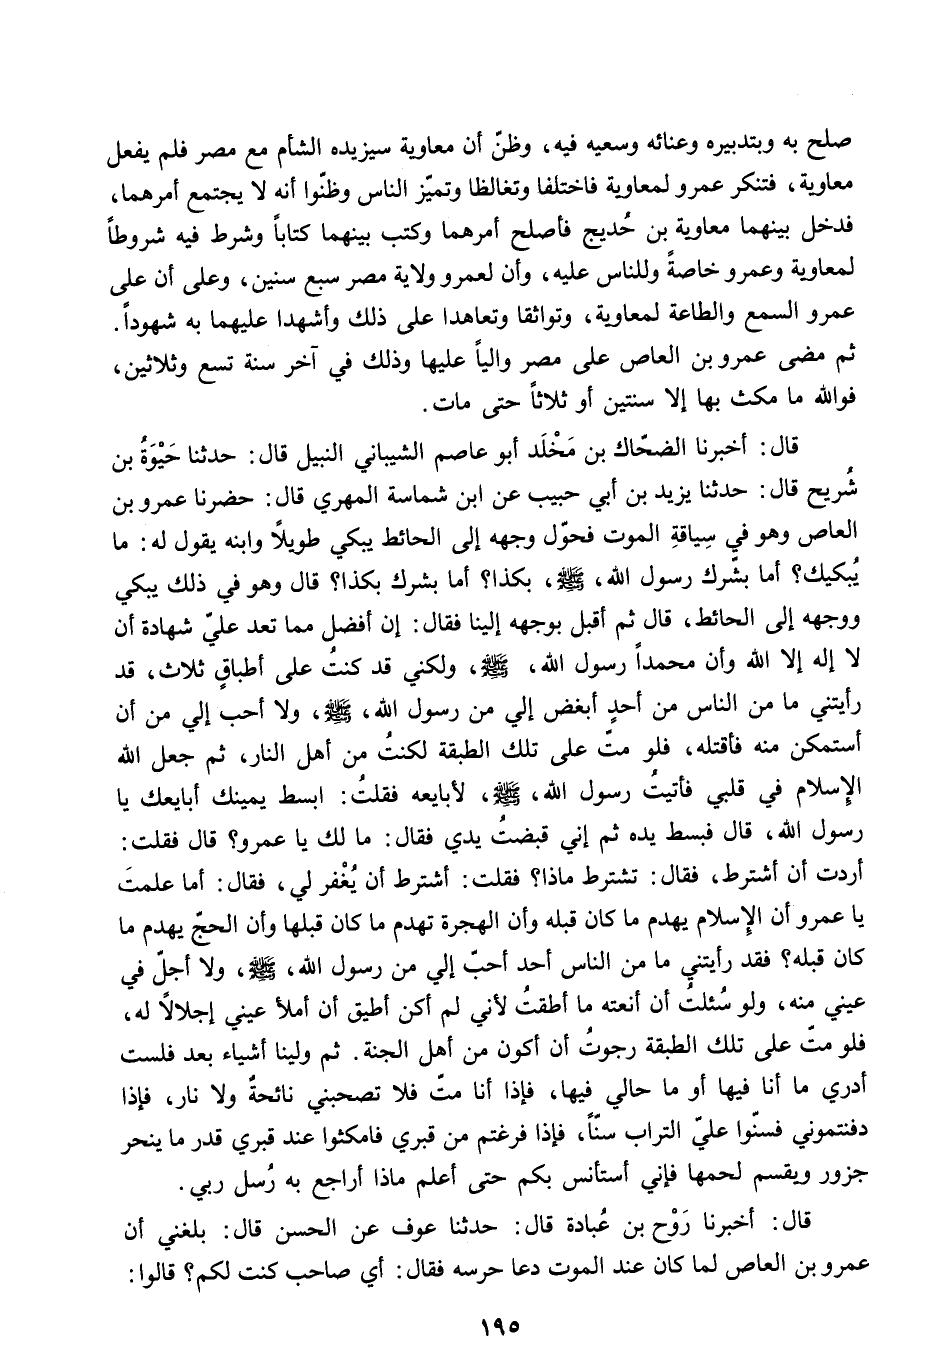 صلح به وبتدبيره وعنائه وسعيه فيه، وظنّ أن معاوية سيزيده الشأم مع مصر فلم يفعل
معاوية، فتنكر عمرو لمعاوية فاختلفا وتغالظا وتميّز الناس وظنّوا أنه لا يجتمع أمرهما،
فدخل بينهما معاوية بن حُديج فأصلح أمرهما وكتب بينهما كتاباً وشرط فيه شروطاً
لمعاوية وعمرو خاصةً وللناس عليه، وأن لعمرو ولاية مصر سبع سنين، وعلى أن على
عمرو السمع والطاعة لمعاوية، وتواثقا وتعاهدا على ذلك وأشهدا عليهما به شهوداً.
ثم مضى عمرو بن العاص على مصر والياً عليها وذلك في آخر سنة تسع وثلاثين،
فوالله ما مكث بها إلا سنتين أو ثلاثاً حتى مات.
قال: أخبرنا الضحّاك بن مَخْلَد أبو عاصم الشيباني النبيل قال: حدثنا حَيْوَةُ بن
شُريح قال: حدثنا يزيد بن أبي حبيب عن ابن شماسة المهري قال: حضرنا عمرو بن
العاص وهو في سِياقةِ الموت فحوّل وجهه إلى الحائط يبكي طويلاً وابنه يقول له: ما
يُبكيك؟ أما بشّرك رسول الله، ﷺ، بكذا؟ أما بشرك بكذا؟ قال وهو في ذلك يبكي
ووجهه إلى الحائط، قال ثم أقبل بوجهه إلينا فقال: إن أفضل مما تعد عليّ شهادة أن
لا إله إلا الله وأن محمداً رسول الله، ﷺ، ولكني قد كنتُ على أطباقٍ ثلاث، قد
رأيتني ما من الناس من أحدٍ أبغض إلي من رسول الله، ﷺ، ولا أحب إلي من أن
أستمكن منه فأقتله، فلو متّ على تلك الطبقة لكنتُ من أهل النار، ثم جعل الله
الإسلام في قلبي فأتيتُ رسول الله، ﷺ، لأبايعه فقلتُ: ابسط يمينك أبايعك يا
رسول الله، قال فبسط يده ثم إني قبضتُ يدي فقال: ما لك يا عمرو؟ قال فقلت:
أردت أن أشترط، فقال: تشترط ماذا؟ فقلت: أشترط أن يُغْفر لي، فقال: أما علمتَ
يا عمرو أن الإسلام يهدم ما كان قبله وأن الهجرة تهدم ما كان قبلها وأن الحجّ يهدم ما
كان قبله؟ فقد رأيتني ما من الناس أحد أحبّ إلي من رسول الله، ﷺ، ولا أجلّ في
عيني منه، ولو سُئلتُ أن أنعته ما أطقتُ لأني لم أكن أطيق أن أملأ عيني إجلالاً له،
فلو متّ على تلك الطبقة رجوتُ أن أكون من أهل الجنة. ثم ولينا أشياء بعد فلست
أدري ما أنا فيها أو ما حالي فيها، فإذا أنا متّ فلا تصحبني نائحةٌ ولا نار، فإذا
دفنتموني فسنّوا عليّ التراب سنّاً، فإذا فرغتم من قبري فامكثوا عند قبري قدر ما ينحر
جزور ويقسم لحمها فإني أستأنس بكم حتى أعلم ماذا أراجع به رُسل ربي.
قال: أخبرنا رَوْح بن عُبادة قال: حدثنا عوف عن الحسن قال: بلغني أن
عمرو بن العاص لما كان عند الموت دعا حرسه فقال: أي صاحب كنت لكم؟ قالوا:
١٩٥